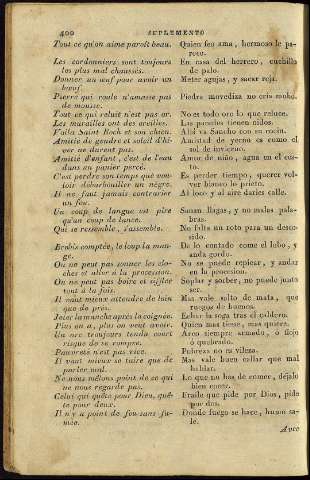 400 SUPLEMENTO
Tout ce qu'on aime paroît beau.
Les cordonniers sont toujours
les plus mal chaussés.
Donner un œuf pour avoir un
bœuf.
Pierre qui roule n'amasse pas
de mousse.
Tout ce qui reluit n'est pas or.
Les murailles ont des oreilles.
Voila Saint Roch et son chien.
Amitié de gendre et soleil d'hi-
ver ne durent pas.
Amitié d'enfant, c'est de l'eau
dans un panier percé.
C'est perdre son temps que vou-
loir débarbouiller un nègre.
Il ne faut jamais contrarier
un fou.
Un coup de langue est pire
qu'un coup de lance.
Qui se ressemble, s'assemble.
Brebis comptée, le loup la man-
ge.
On ne peut pas sonner les clo-
ches et aller à la procession.
On ne peut boire et siffler
tout à la fois.
Il vaut mieux attendre de loin
que de près.
Jeter la manche après la coignée.
Plus on a, plus on veut avoir.
Un arc toujours tendu court
risque de se rompre.
Pauvreté n'est pas vice.
Il vaut mieux se taire que de
parler mal.
Ne nous mêlons point de ce qui
ne nous regarde pas.
Celui qui quête pour Dieu, quê-
te pour deux.
Il n'y a point de feu sans fu-
mée.
Quien feo ama, hermoso le pa-
rece.
En casa del herrero, cuchillo
de palo.
Meter agujas, y sacar reja.
Piedra movediza no cria moho.
No es todo oro lo que reluce.
Las paredes tienen oidos.
Ahí va Sancho con su rocin.
Amistad de yerno es como el
sol de invierno.
Amor de niño, agua en el ces-
to.
Es perder tiempo, querer vol-
ver blanco lo prieto.
Al loco y al aire darles calle.
Sanan llagas, y no malas pala-
bras.
No falta un roto para un desco-
sido.
De lo contado come el lobo, y
anda gordo.
No se puede repicar, y andar
en la procesion.
Soplar y sorber, no puede junto
ser.
Mas vale salto de mata, que
ruegos de buenos.
Echar la soga tras el caldero.
Quien mas tiene, mas quiere.
Arco siempre armado, ó flojo
ó quebrado.
Pobreza no es vileza.
Mas vale buen callar que mal
hablar.
Lo que no has de comer, déjalo
bien cocer.
Fraile que pide por Dios, pide
por dos.
Donde fuego se hace, humo sa-
le.
Avec